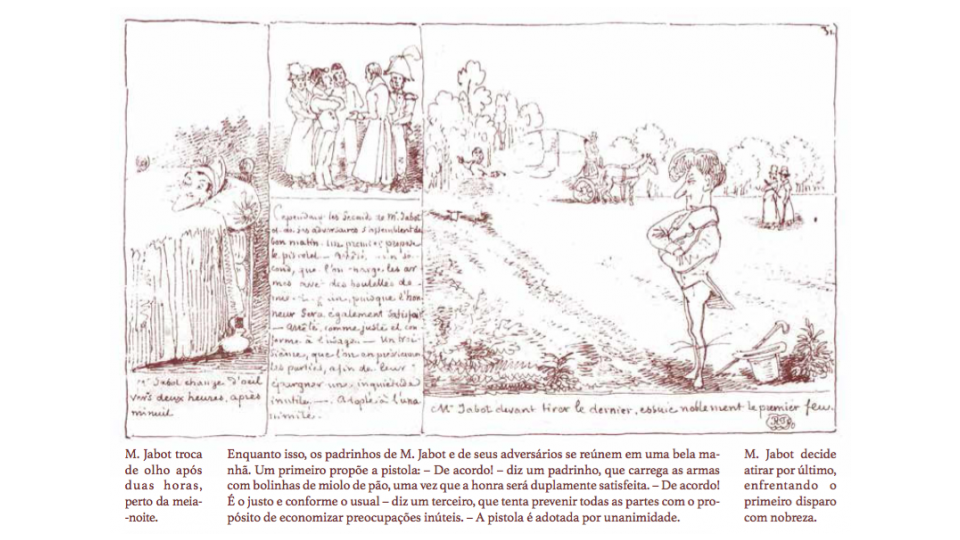 Mr Jabot change d'oeil
vers deux heures, après
minuit
Cependant les seconds de Mr Jabot
et de ses adversaires s'assemblent de
bon matin. Un premier propose
le pistolet — Un se
cond, que l'on charge les ar
mes avec des boulettes de
mie puisque l'hon
neur sera également satisfait
— comme juste et con
forme à l'usage. — Un troi
sième, que l'on en prévienne
les parties, afin de leur
épargner une inquiétude
inutile —. Adopté à l'una
nimité.
Mr Jabot devant tirer le dernier, essuie noblement le premier feu.
M. Jabot troca
de olho após
duas horas,
perto da meia-
-noite.
Enquanto isso, os padrinhos de M. Jabot e de seus adversários se reúnem em uma bela ma-
nhã. Um primeiro propõe a pistola: – De acordo! – diz um padrinho, que carrega as armas
com bolinhas de miolo de pão, uma vez que a honra será duplamente satisfeita. – De acordo!
É o justo e conforme o usual – diz um terceiro, que tenta prevenir todas as partes com o pro-
pósito de economizar preocupações inúteis. – A pistola é adotada por unanimidade.
M. Jabot decide
atirar por último,
enfrentando o
primeiro disparo
com nobreza.